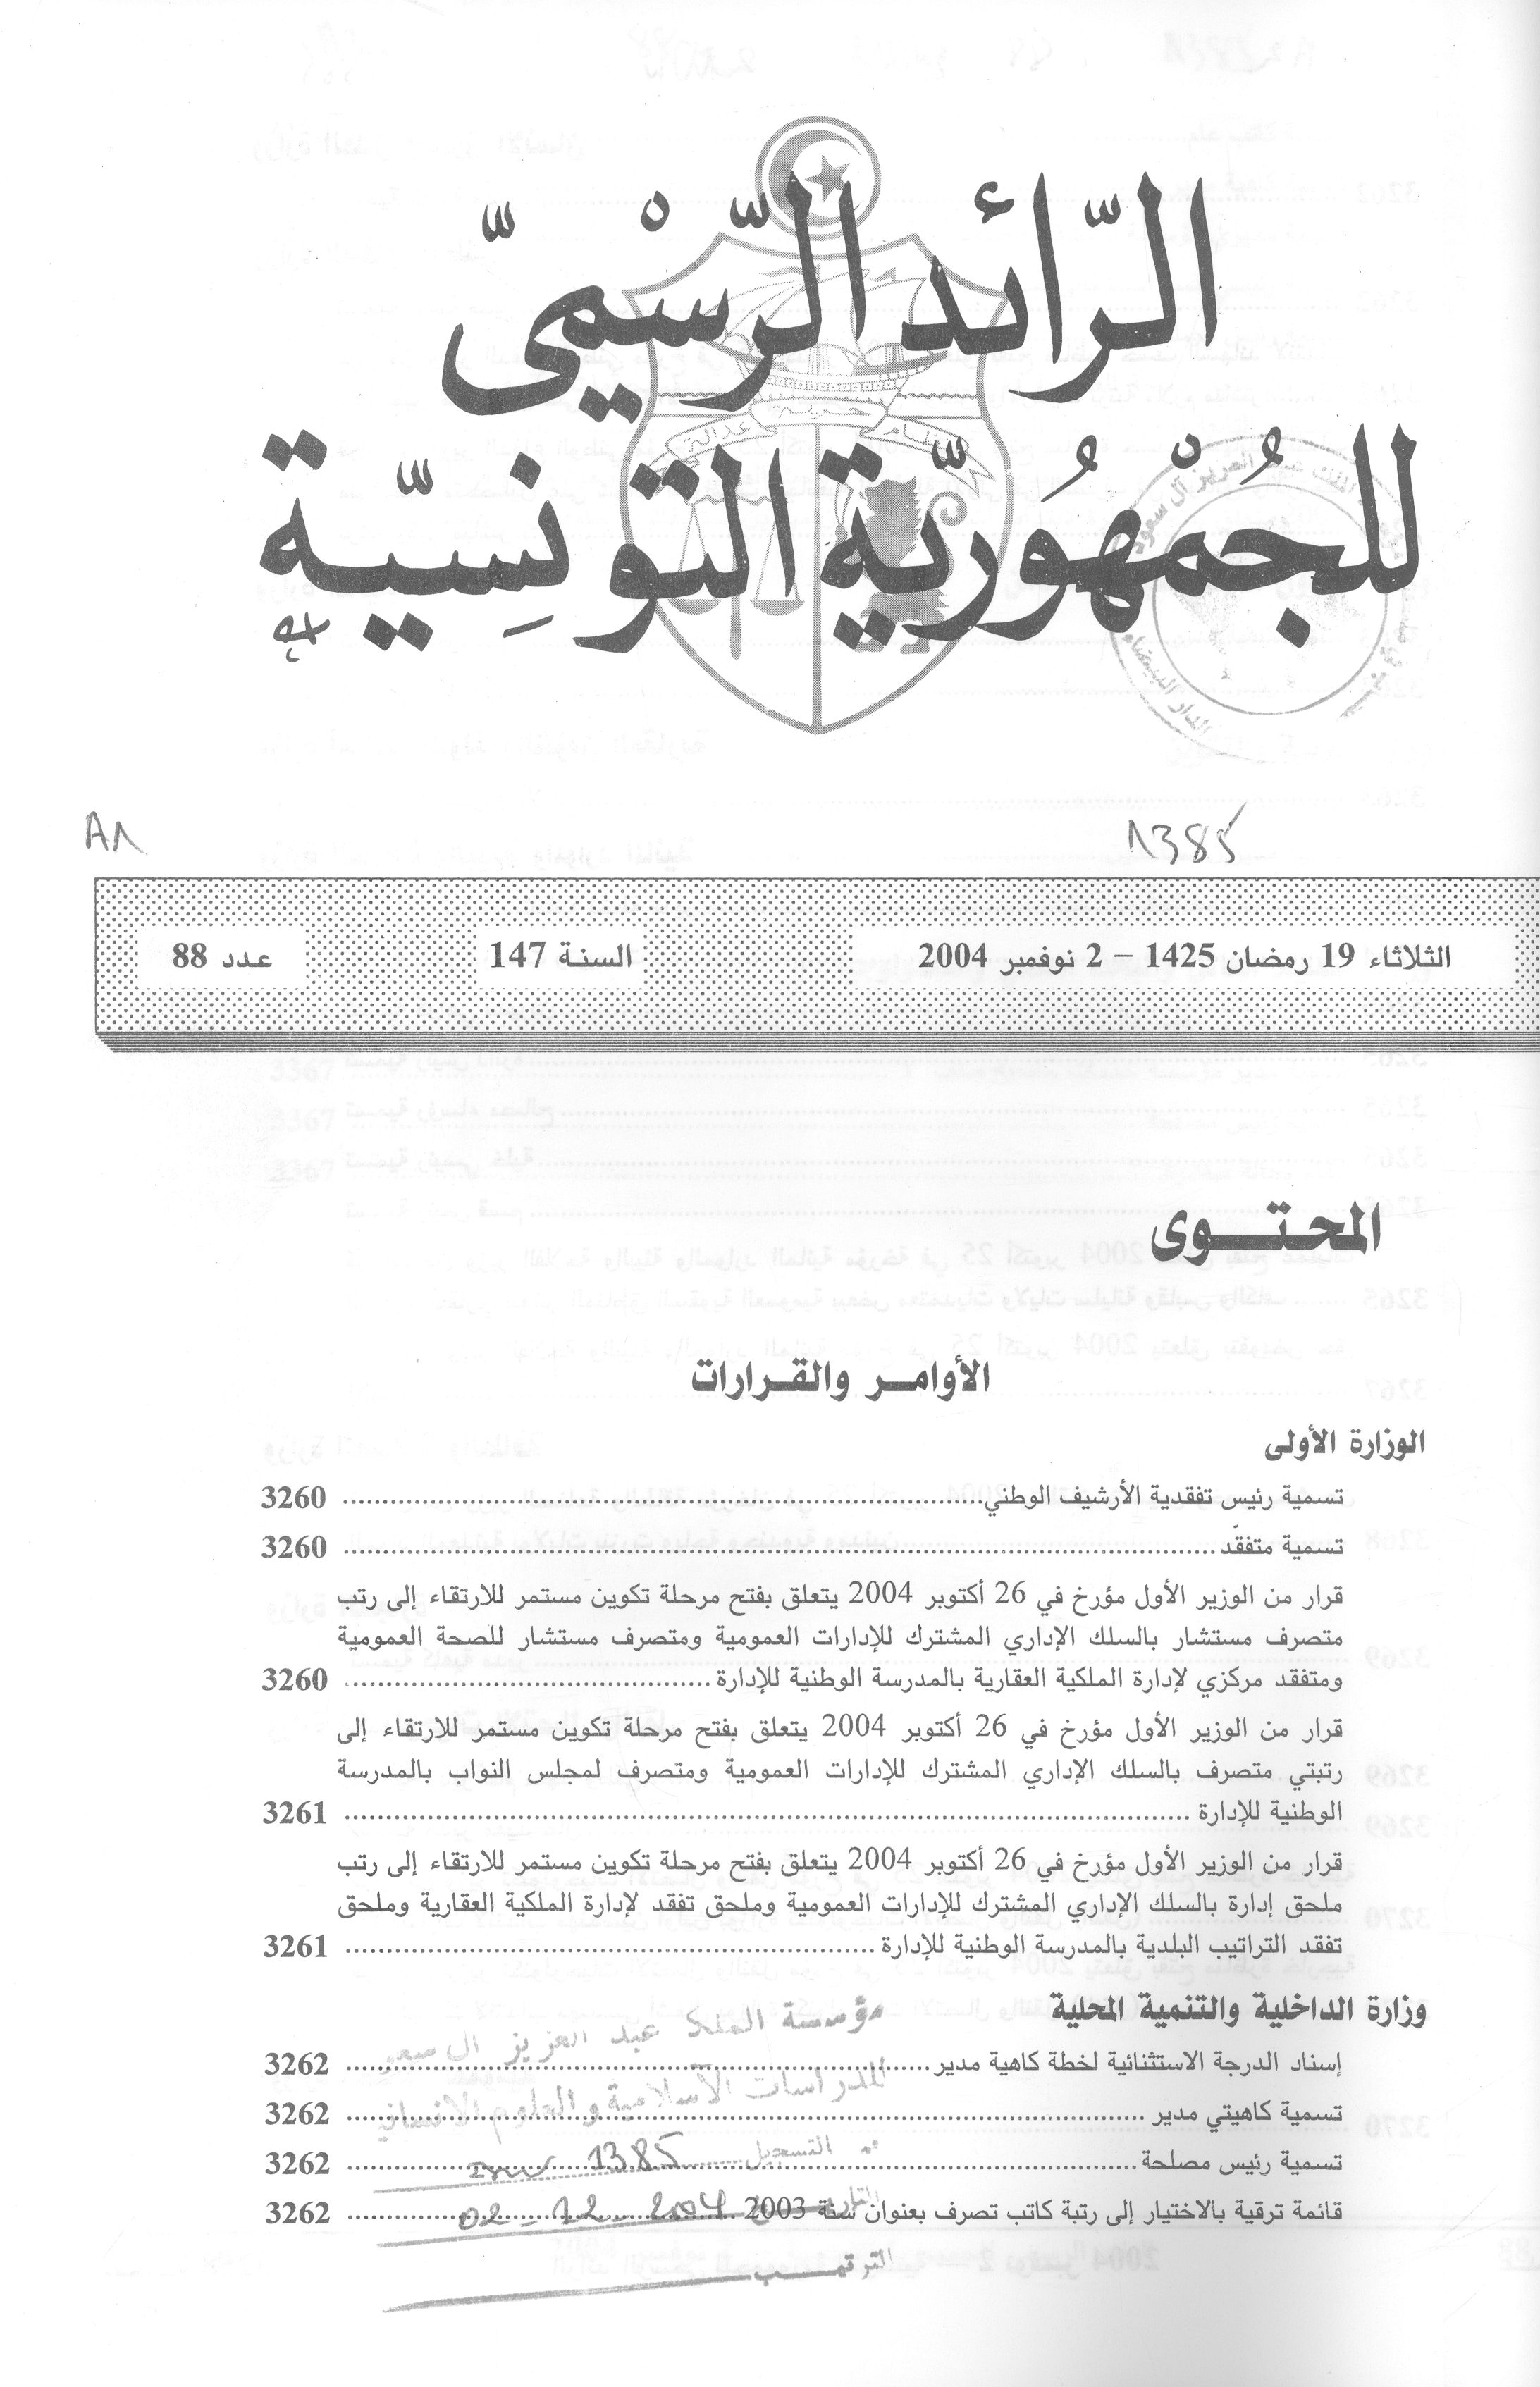 الرّائد الرّسْميّ
للجُمْهُوريّة التونِسيّة
نظام حرية عدالة
A1
1385
الثلاثاء 19 رمضان 1425 – 2 نوفمبر 2004
السنة 147
عدد 88
المحتوى
الأوامر والقرارات
الوزارة الأولى
تسمية رئيس تفقدية الأرشيف الوطني 3260
تسمية متفقّد 3260
قرار من الوزير الأول مؤرخ في 26 أكتوبر 2004 يتعلق بفتح مرحلة تكوين مستمر للارتقاء إلى رتب
متصرف مستشار بالسلك الإداري المشترك للإدارات العمومية ومتصرف مستشار للصحة العمومية
ومتفقد مركزي لإدارة الملكية العقارية بالمدرسة الوطنية للإدارة 3260
قرار من الوزير الأول مؤرخ في 26 أكتوبر 2004 يتعلق بفتح مرحلة تكوين مستمر للارتقاء إلى
رتبتي متصرف بالسلك الإداري المشترك للإدارات العمومية ومتصرف لمجلس النواب بالمدرسة
الوطنية للإدارة 3261
قرار من الوزير الأول مؤرخ في 26 أكتوبر 2004 يتعلق بفتح مرحلة تكوين مستمر للارتقاء إلى رتب
ملحق إدارة بالسلك الإداري المشترك للإدارات العمومية وملحق تفقد لإدارة الملكية العقارية وملحق
تفقد التراتيب البلدية بالمدرسة الوطنية للإدارة 3261
وزارة الداخلية والتنمية المحلية
إسناد الدرجة الاستثنائية لخطة كاهية مدير 3262
تسمية كاهيتي مدير 3262
تسمية رئيس مصلحة 3262
قائمة ترقية بالاختيار إلى رتبة كاتب تصرف بعنوان سنة 2003 3262
مؤسسة الملك عبد العزيز ال
للدراسات الاسلامية والعلوم
التسجيل 1385
02 - 12 2004